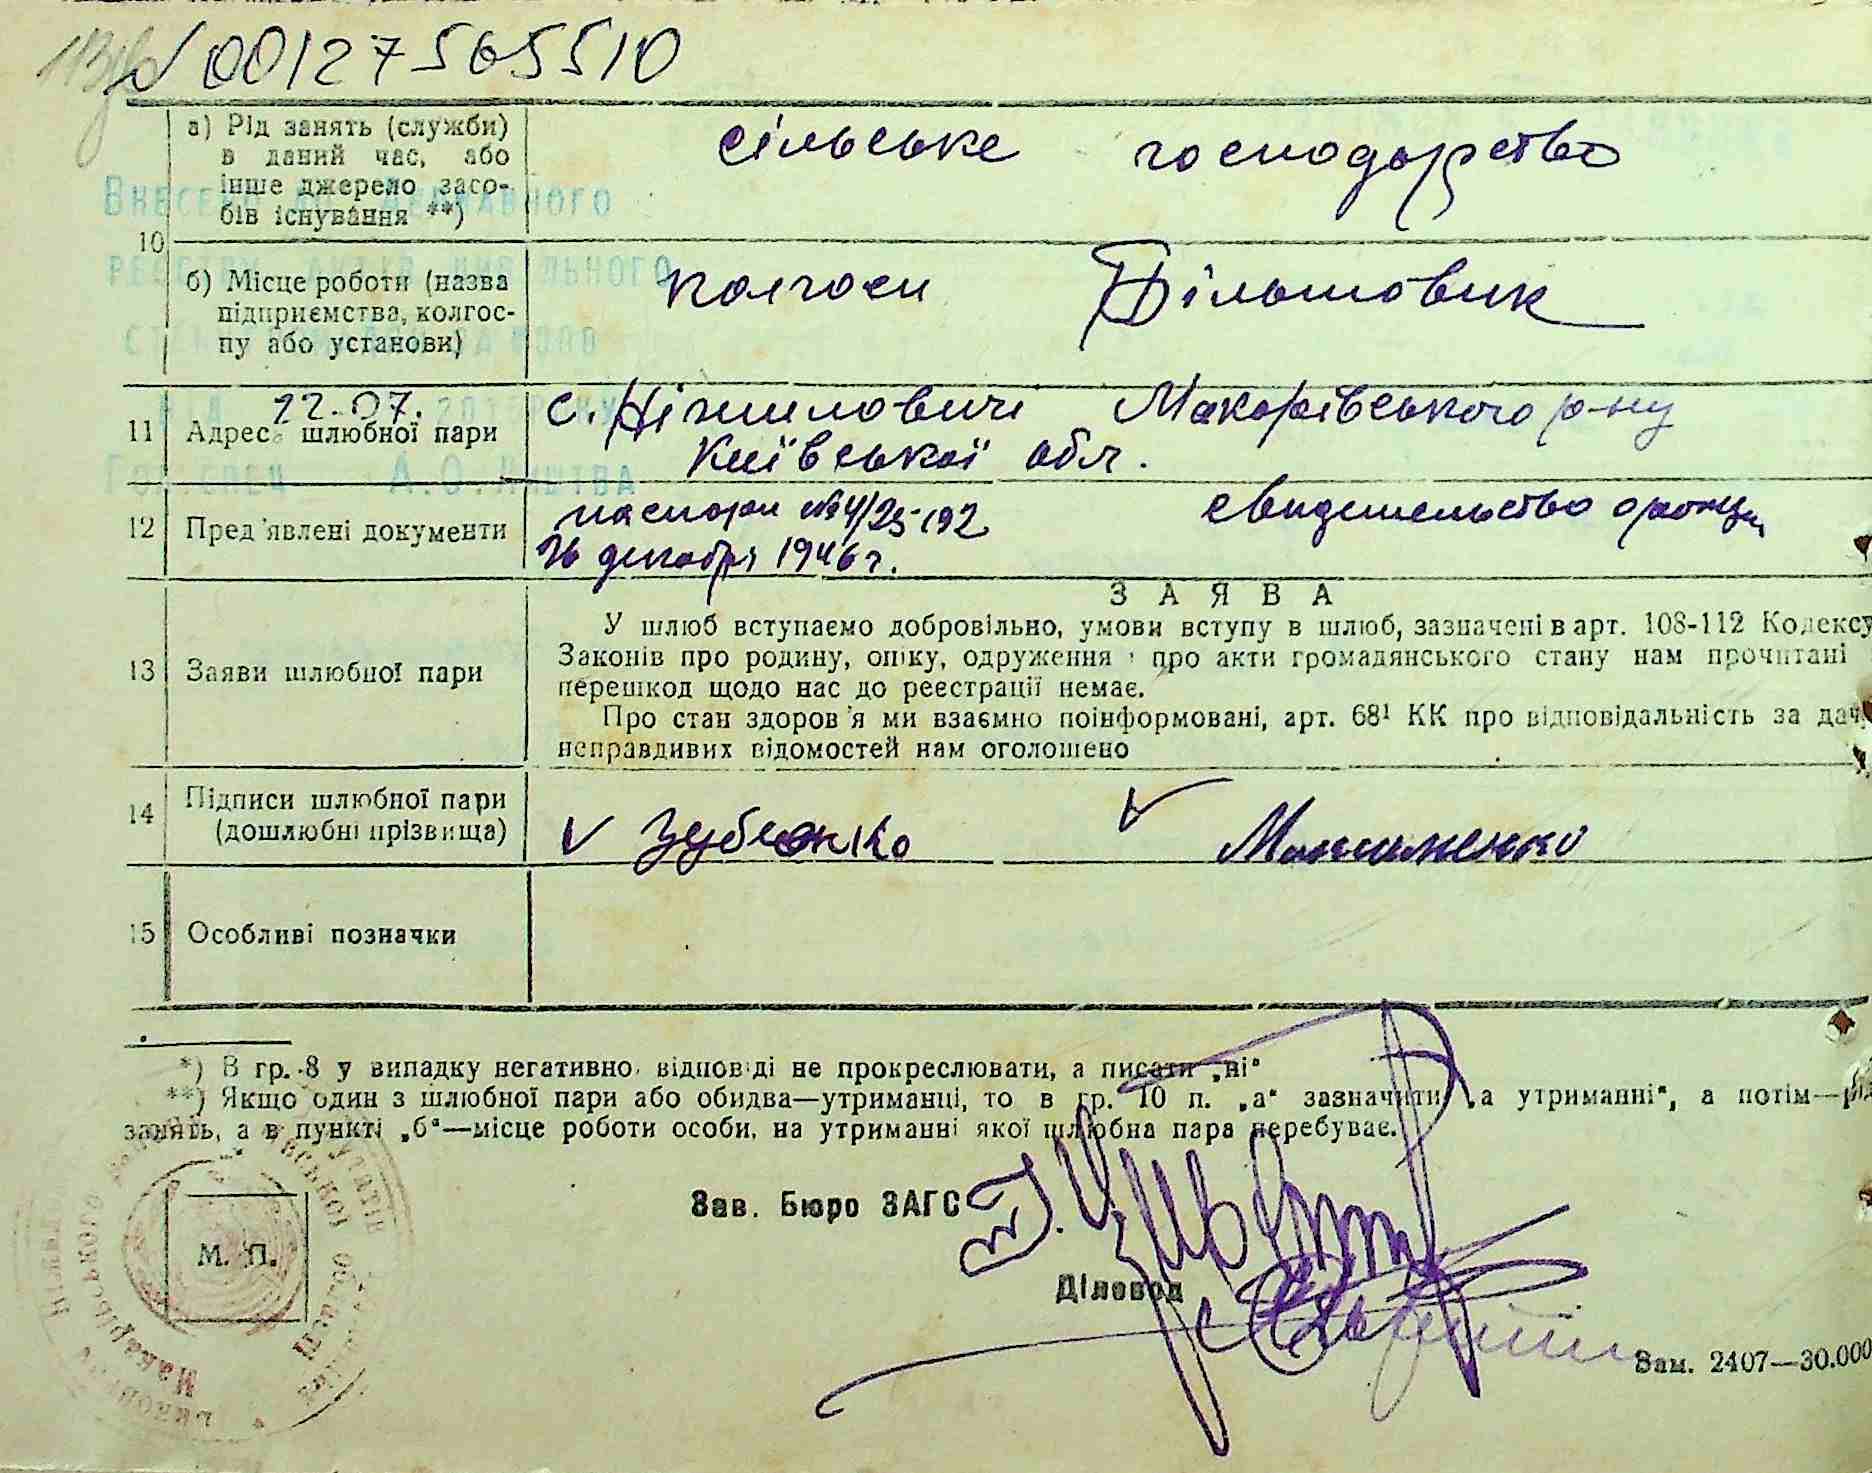 00127565510
10
а) Рід занять (служби)
в даний час, або
інше джерело засо-
бів існування **)
сільське господарство
б) Місце роботи (назва
підприємства, колгос-
пу або установи)
колгосп Більшовик
Внесено до Державного
реєстру актів цивільного
22.07.
А.О.
11 Адреса шлюбної пари
с. Ніжиловичі Макарівського р-ну
Київської обл.
12 Пред'явлені документи
паспорт
26 декабря 1946 г.
свидетельство
13 Заяви шлюбної пари
ЗАЯВА
У шлюб вступаємо добровільно, умови вступу в шлюб, зазначені в арт. 108-112 Кодексу
Законів про родину, опіку, одруження і про акти громадянського стану нам прочитані
перешкод щодо нас до реєстрації немає.
Про стан здоров'я ми взаємно поінформовані, арт. 68¹ КК про відповідальність за дач
неправдивих відомостей нам оголошено
14 Підписи шлюбної пари
(дошлюбні прізвища)
Зубченко Макименко
15 Особливі позначки
*) В гр. 8 у випадку негативно відповіді не прокреслювати, а писати „ні“
**) Якщо один з шлюбної пари або обидва—утриманці, то в гр. 10 п. „а“ зазначити „а утриманні“, а потім—рід
занять, а в пункті „б“—місце роботи особи, на утриманні якої шлюбна пара перебуває.
М. П.
Зав. Бюро ЗАГС
Діловод
Зам. 2407—30.000